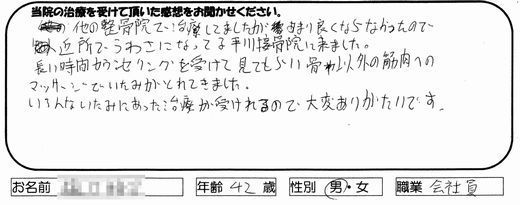 当院の治療を受けて頂いた感想をお聞かせください。
他の整骨院で治療してましたがあまり良くならなかったので
近所でうわさになってる平川接骨院に来ました。
長い時間カウンセリングを受けて見てもらい骨以外の筋肉への
マッサージでいたみがとれてきました。
いろんないたみにあった治療が受けれるので大変ありがたいです。
お名前 年齢 42 歳 性別 男・女 職業 会社員